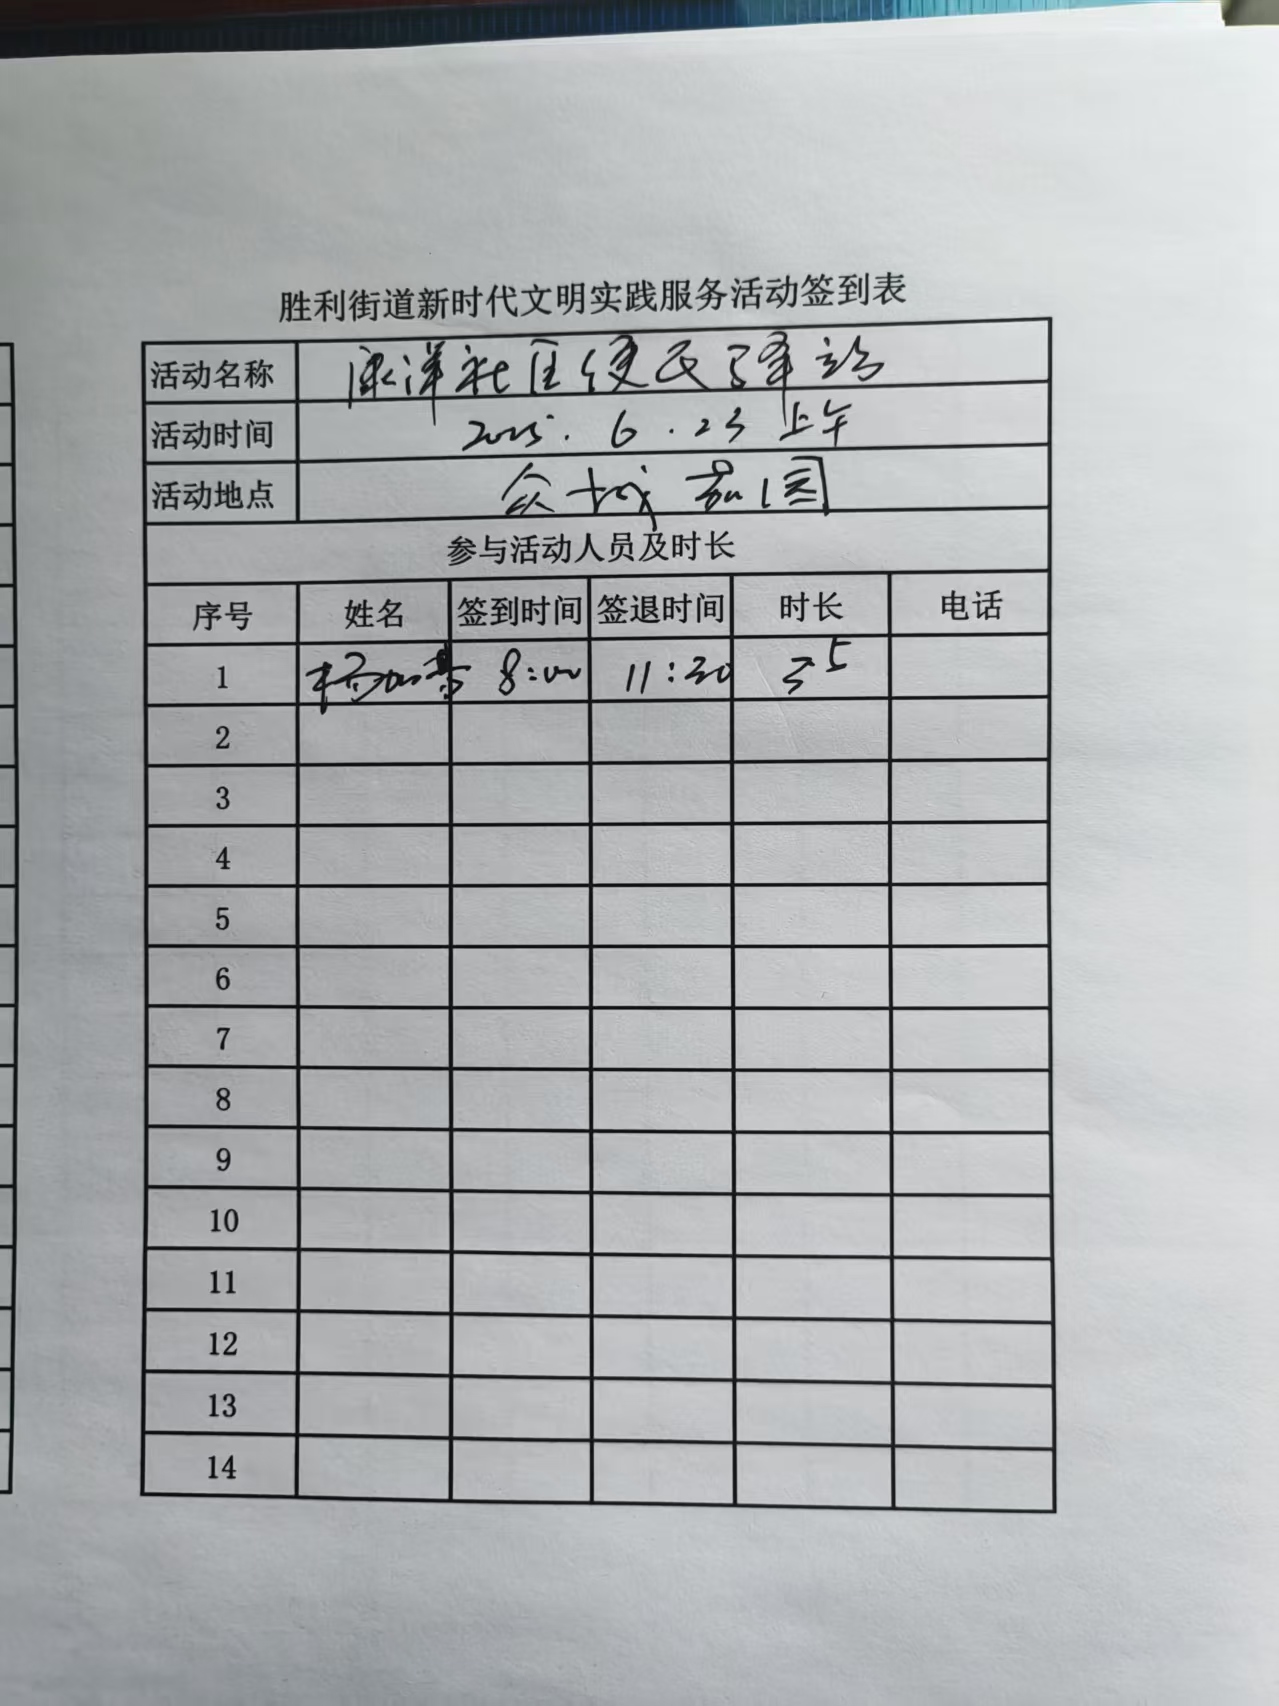 胜利街道新时代文明实践服务活动签到表
活动名称 康洋社区便民驿站
活动时间 2025.6.23上午
活动地点 众城茄园
参与活动人员及时长
序号 姓名 签到时间 签退时间 时长 电话
1 杨 8:00 11:30 3.5
2
3
4
5
6
7
8
9
10
11
12
13
14